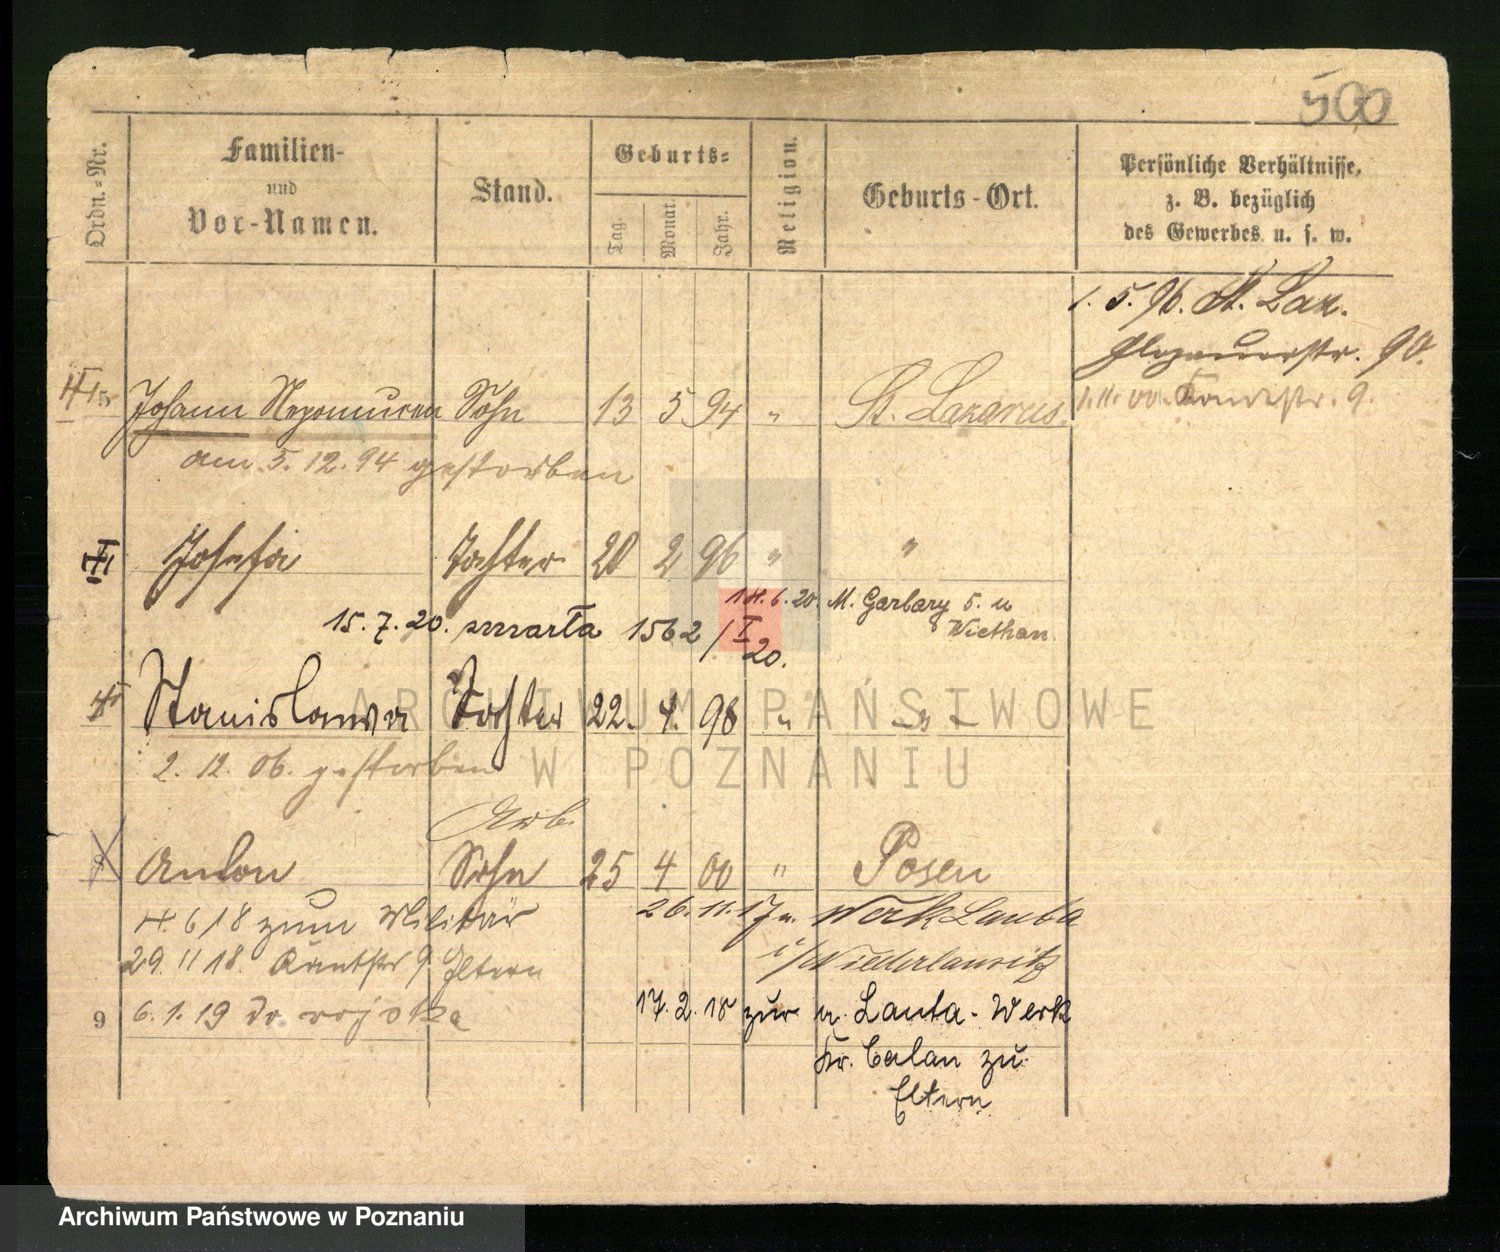 500
Ordn.-Nr.
Familien-
und
Vor-Namen.
Stand.
Geburts-
Tag.
Monat.
Jahr.
Religion.
Geburts-Ort.
Persönliche Verhältnisse,
z. B. bezüglich
des Gewerbes u. s. w.
1. 5. 96. St. Laz.
Glogauerstr. 90.
Johann Nepomucen Sohn 13 5 94 " St. Lazarus
1. 11. 00. Kantstr. 9.
am 5. 12. 94 gestorben
Josefa Tochter 20 2 96 " "
14. 6. 20. M. Garbary 5. u
15. 7. 20. zmarła 1562 / I 20.
Stanislawa Tochter 22. 4. 98 " - " -
2. 12. 06. gestorben
Arb.
Anton Sohn 25 4 00 " Posen
4. 6 18 zum Militär
26. 11. 17 n. Werk Lauta
29. 11 18. Kantstr 9 Eltern
i/Niederlausitz
9 6. 1. 19 do
17. 2. 18 zur n. Lauta-Werk
Kr. Calau zu
Eltern
ARCHIWUM PAŃSTWOWE
W POZNANIU
Archiwum Państwowe w Poznaniu